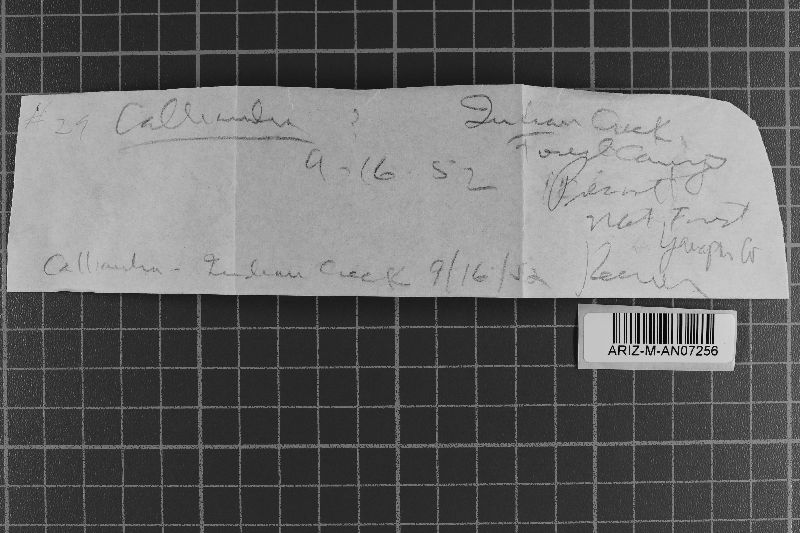 #29 Calliandra ? Indian Creek,
Forest Camp
9-16-52
Prescott
Nat. Forest
Yavapai Co
Calliandra - Indian Creek 9/16/52
ARIZ-M-AN07256